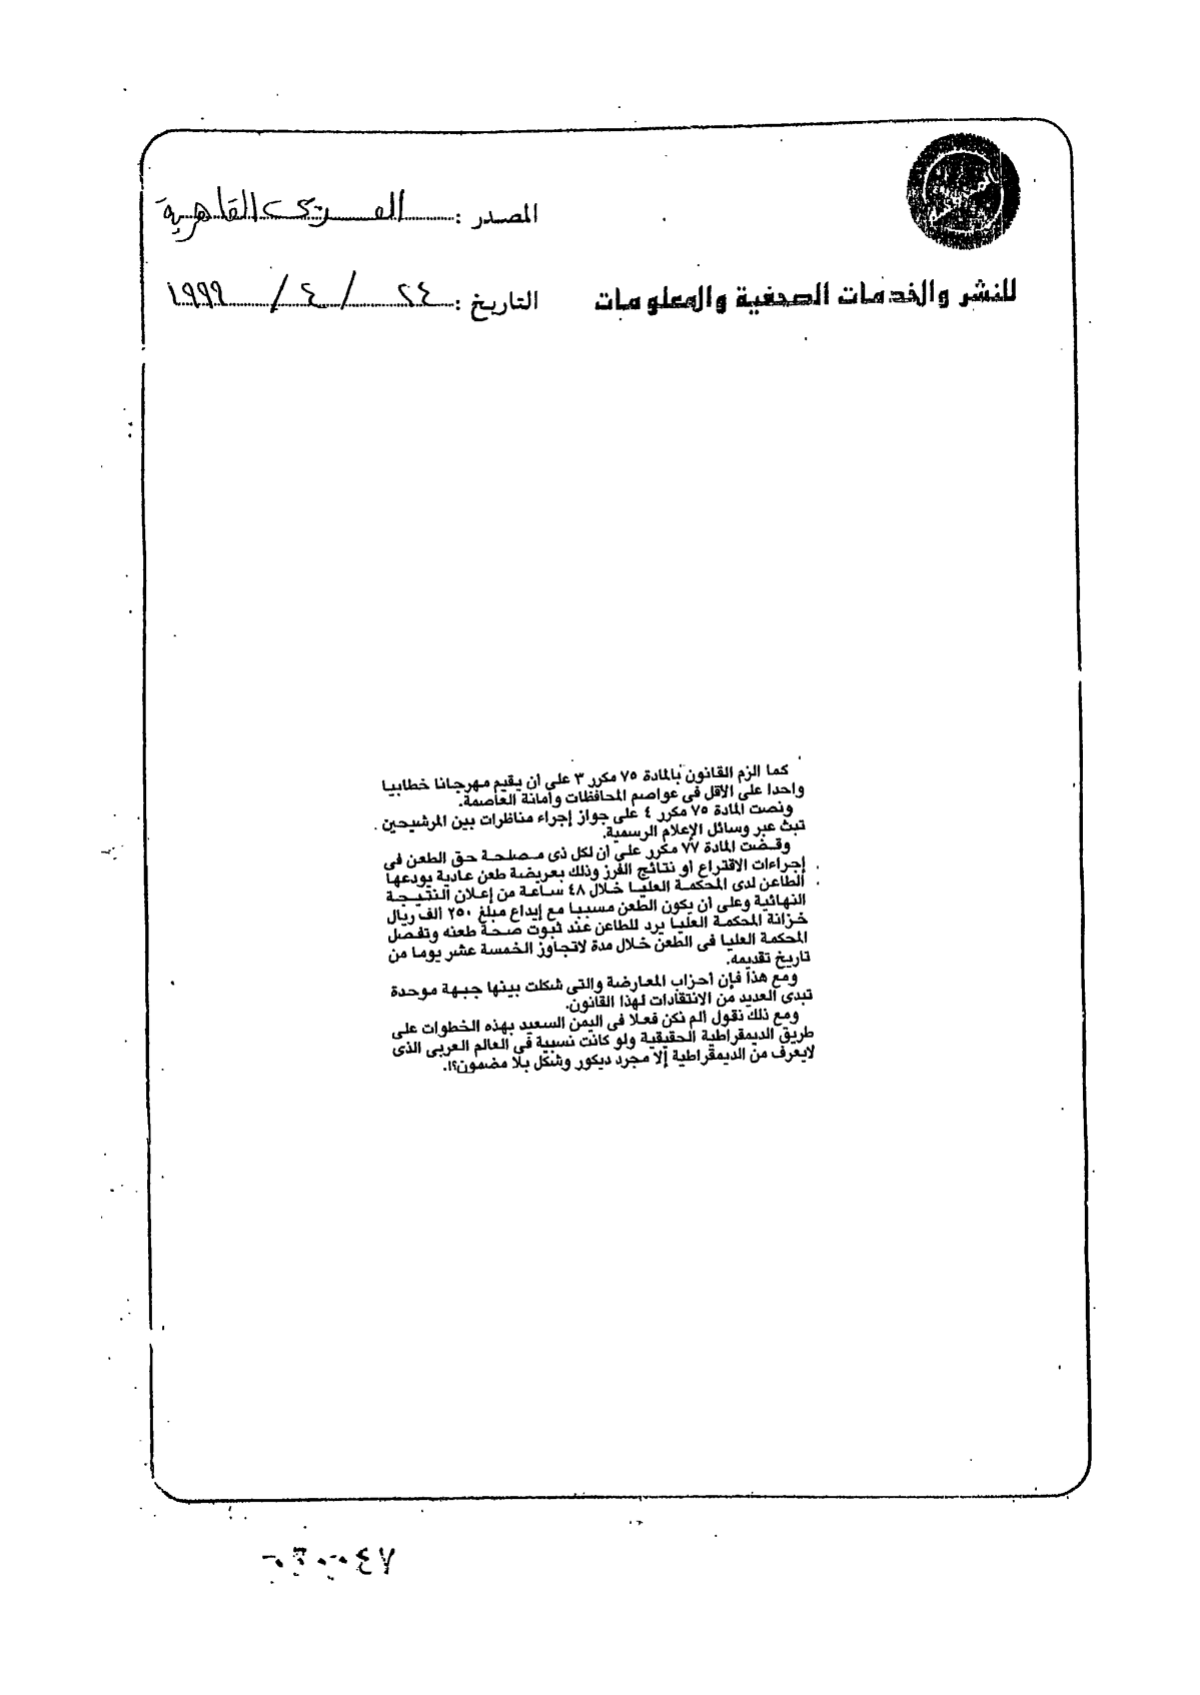 المصدر : العربى القاهرية
للنشر والخدمات الصحفية والمعلومات
التاريخ : ٢٤ / ٤ / ١٩٩٩
كما الزم القانون بالمادة ٧٥ مكرر ٣ على ان يقيم مهرجانا خطابيا
واحدا على الاقل فى عواصم المحافظات وأمانة العاصمة.
ونصت المادة ٧٥ مكرر ٤ على جواز إجراء مناظرات بين المرشيحين
تبث عبر وسائل الإعلام الرسمية.
وقضت المادة ٧٧ مكرر على أن لكل ذى مصلحة حق الطعن فى
إجراءات الاقتراع أو نتائج الفرز وذلك بعريضة طعن عادية يودعها
الطاعن لدى المحكمة العليا خلال ٤٨ ساعة من إعلان النتيجة
النهائية وعلى أن يكون الطعن مسببا مع إيداع مبلغ ٢٥٠ الف ريال
خزانة المحكمة العليا يرد للطاعن عند ثبوت صحة طعنه وتفصل
المحكمة العليا فى الطعن خلال مدة لاتجاوز الخمسة عشر يوما من
تاريخ تقديمه.
ومع هذا فإن أحزاب المعارضة والتى شكلت بينها جبهة موحدة
تبدى العديد من الانتقادات لهذا القانون.
ومع ذلك نقول الم نكن فعلا فى اليمن السعيد بهذه الخطوات على
طريق الديمقراطية الحقيقية ولو كانت نسبية فى العالم العربى الذى
لايعرف من الديمقراطية إلا مجرد ديكور وشكل بلا مضمون؟!.